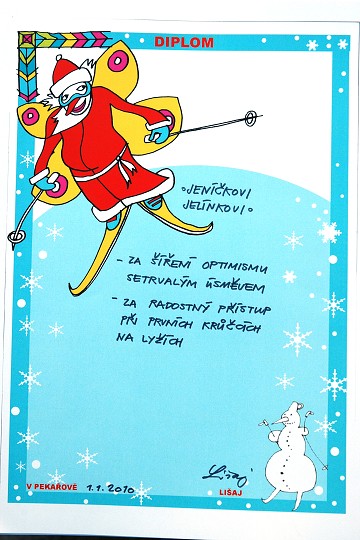 DIPLOM
◦JENÍČKOVI
JELÍNKOVI◦
- ZA ŠÍŘENÍ OPTIMISMU
SETRVALÝM ÚSMĚVEM
- ZA RADOSTNÝ PŘÍSTUP
PŘI PRVNÍCH KRŮČCÍCH
NA LYŽÍCH
Lišaj
V PEKAŘOVĚ 1.1. 2010 LIŠAJ